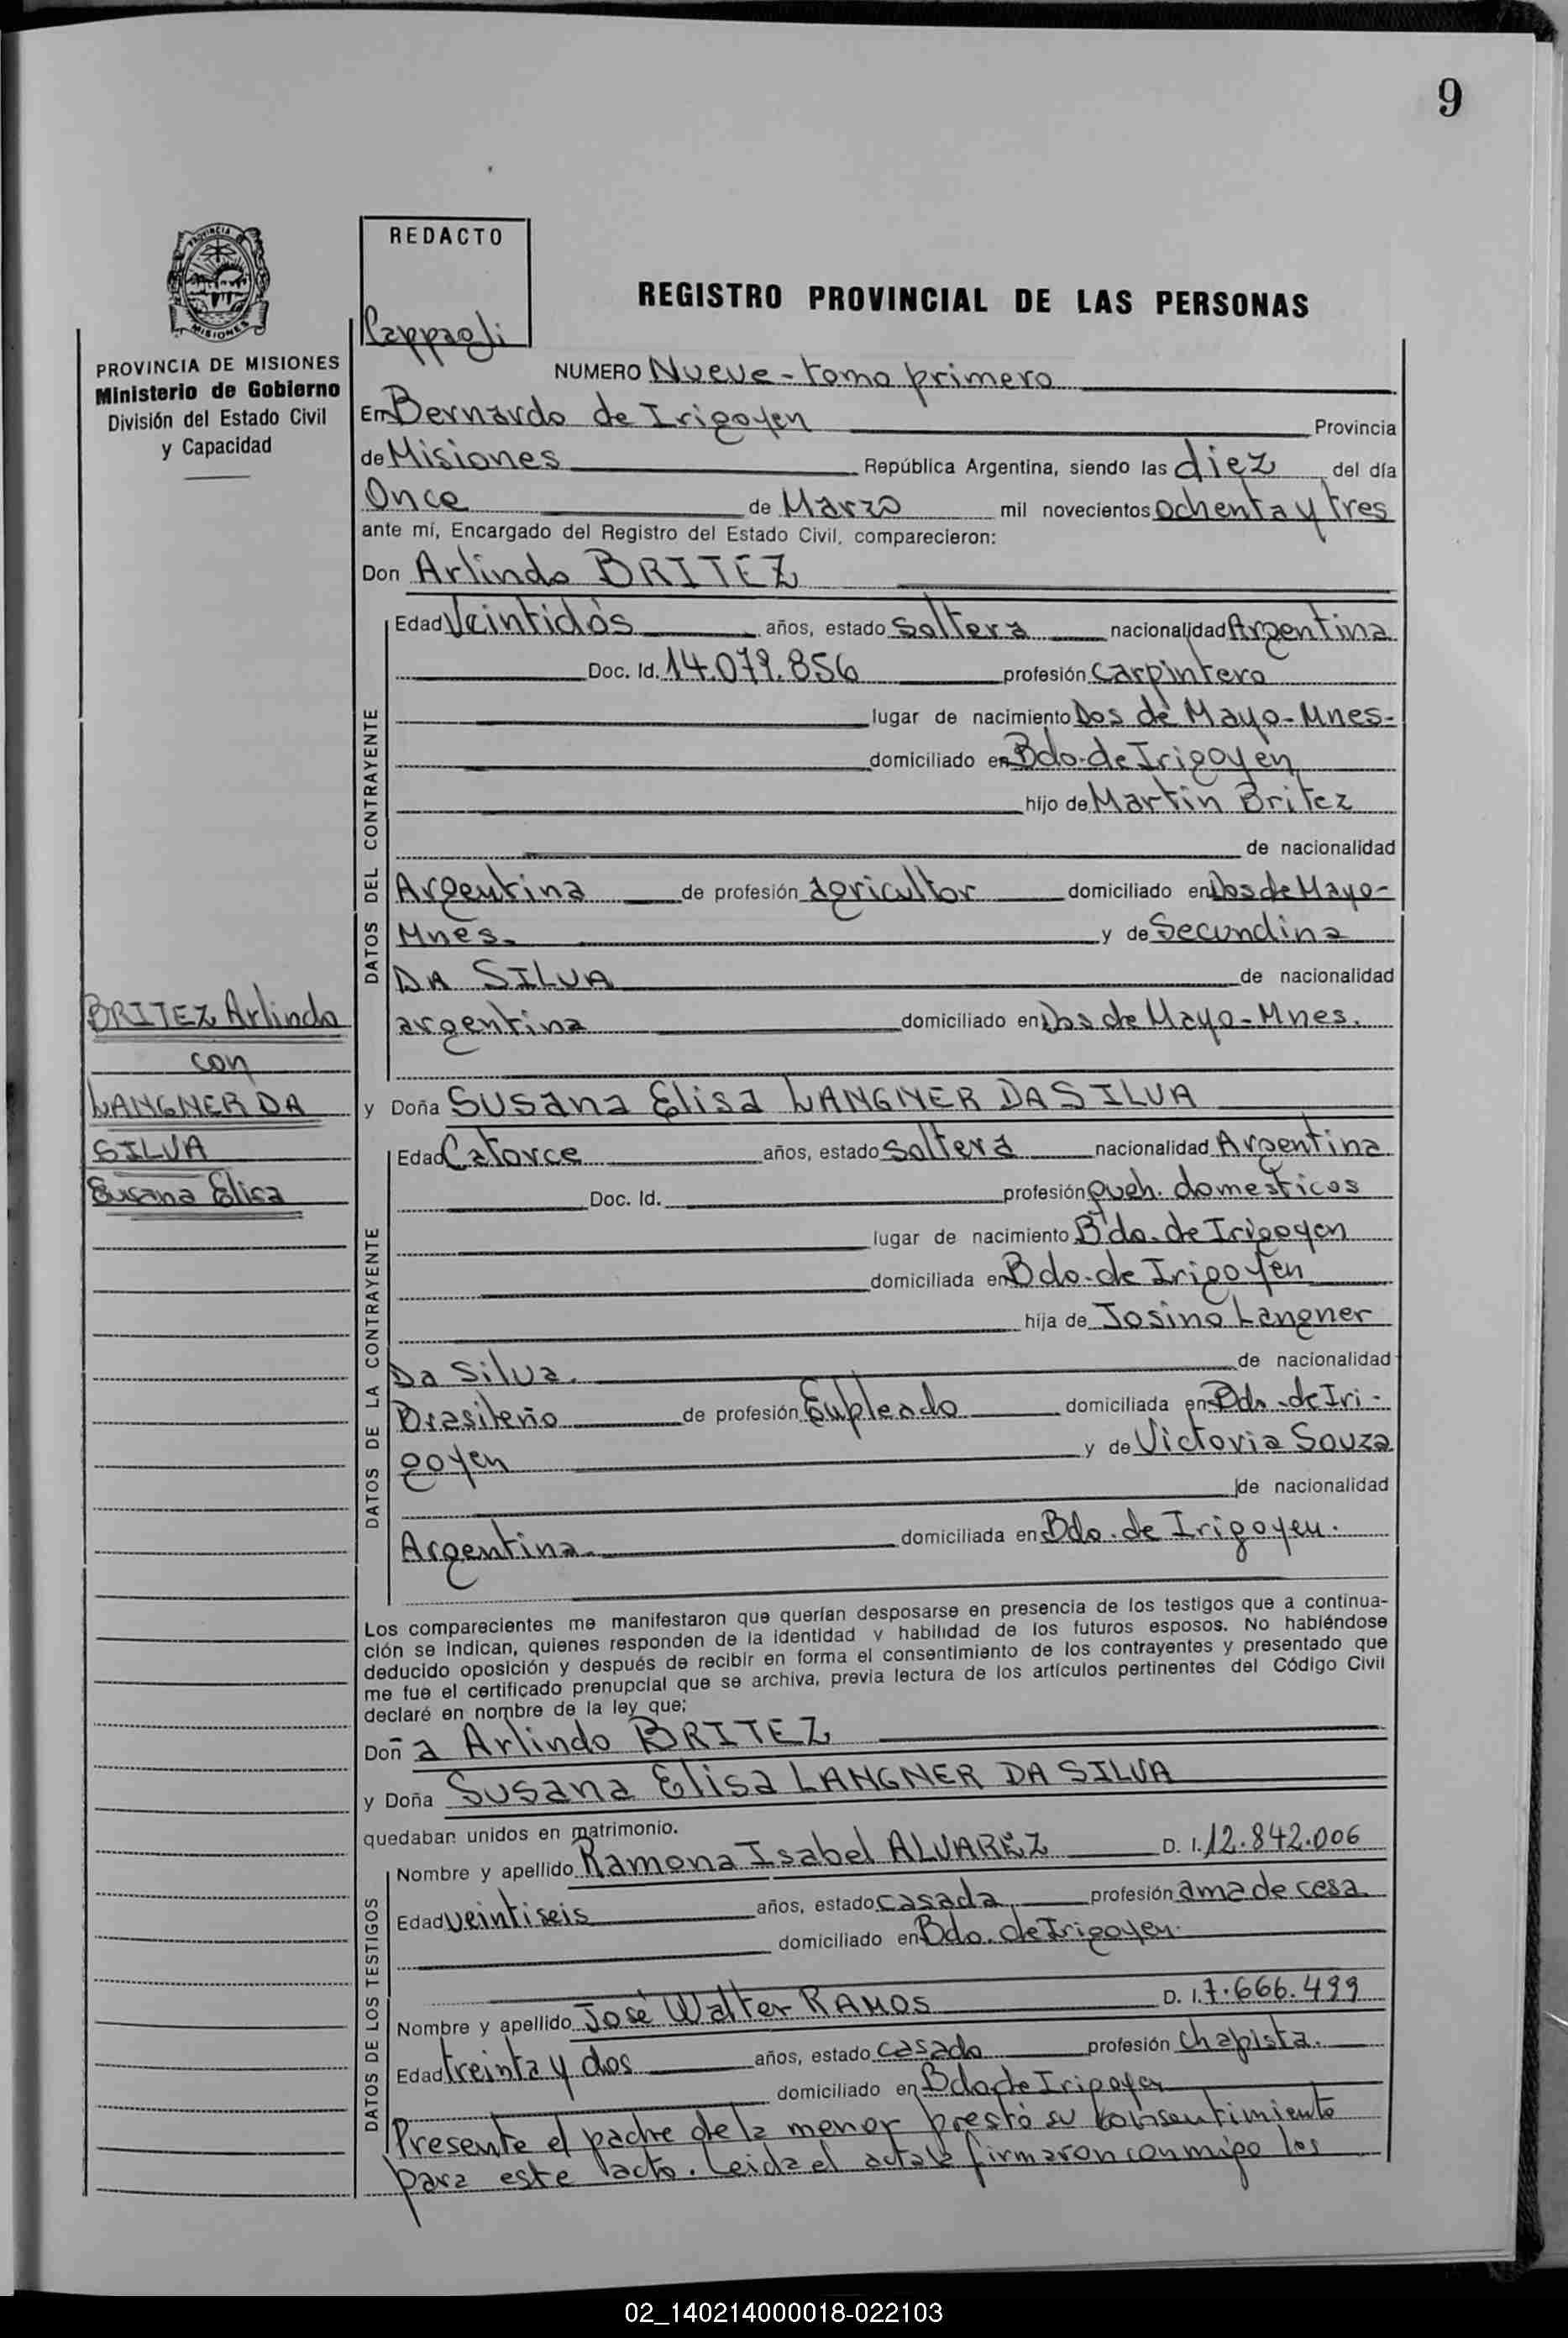 9
REDACTO
Cappagli
REGISTRO PROVINCIAL DE LAS PERSONAS
PROVINCIA DE MISIONES
Ministerio de Gobierno
División del Estado Civil
y Capacidad
NUMERO Nueve - tomo primero
En Bernardo de Irigoyen Provincia
de Misiones República Argentina, siendo las diez del día
Once de Marzo mil novecientos ochenta y tres
ante mí, Encargado del Registro del Estado Civil, comparecieron:
Don Arlindo BRITEZ
DATOS DEL CONTRAYENTE
Edad Veintidós años, estado Soltera nacionalidad Argentina
Doc. Id. 14.079.856 profesión Carpintero
lugar de nacimiento Dos de Mayo - Mnes-
domiciliado en Bdo. de Irigoyen
hijo de Martin Britez
de nacionalidad
Argentina de profesión agricultor domiciliado en Dos de Mayo-
Mnes. y de Secundina
DA SILVA de nacionalidad
argentina domiciliado en Dos de Mayo - Mnes.
BRITEZ Arlindo
con
LANGNER DA
SILVA
Susana Elisa
y Doña Susana Elisa LANGNER DA SILVA
DATOS DE LA CONTRAYENTE
Edad Catorce años, estado Soltera nacionalidad Argentina
Doc. Id. profesión queh. domesticos
lugar de nacimiento Bdo. de Irigoyen
domiciliada en Bdo. de Irigoyen
hija de Josino Langner
Da Silva. de nacionalidad
Brasileño de profesión Empleado domiciliada en Bdo. de Iri-
goyen y de Victoria Souza
de nacionalidad
Argentina domiciliada en Bdo. de Irigoyen.
Los comparecientes me manifestaron que querían desposarse en presencia de los testigos que a continua-
ción se indican, quienes responden de la identidad y habilidad de los futuros esposos. No habiéndose
deducido oposición y después de recibir en forma el consentimiento de los contrayentes y presentado que
me fue el certificado prenupcial que se archiva, previa lectura de los artículos pertinentes del Código Civil
declaré en nombre de la ley que;
Don a Arlindo BRITEZ
y Doña Susana Elisa LANGNER DA SILVA
quedaban unidos en matrimonio.
DATOS DE LOS TESTIGOS
Nombre y apellido Ramona Isabel ALVAREZ D. I. 12.842.006
Edad veintiseis años, estado casada profesión ama de casa
domiciliado en Bdo. de Irigoyen.
Nombre y apellido José Walter RAMOS D. I. 7.666.499
Edad treinta y dos años, estado casado profesión chapista.
domiciliado en Bdo de Irigoyen
Presente el padre de la menor prestó su consentimiento
para este acto. Leida el acta la firmaron conmigo los
02_140214000018-022103